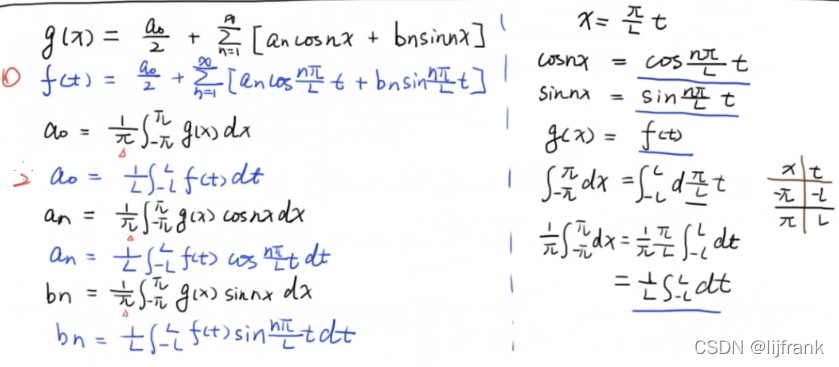 g(x) = a₀/2 + ∑_{n=1}^{∞} [an cosnx + bn sinnx]
① f(t) = a₀/2 + ∑_{n=1}^{∞} [an cos nπ/L t + bn sin nπ/L t]
a₀ = 1/π ∫_{-π}^{π} g(x) dx
2 a₀ = 1/L ∫_{-L}^{L} f(t) dt
an = 1/π ∫_{-π}^{π} g(x) cosnx dx
an = 1/L ∫_{-L}^{L} f(t) cos nπ/L t dt
bn = 1/π ∫_{-π}^{π} g(x) sinnx dx
bn = 1/L ∫_{-L}^{L} f(t) sin nπ/L t dt
x = π/L t
cosnx = cos nπ/L t
sinnx = sin nπ/L t
g(x) = f(t)
∫_{-π}^{π} dx = ∫_{-L}^{L} d π/L t
1/π ∫_{-π}^{π} dx = 1/π π/L ∫_{-L}^{L} dt
= 1/L ∫_{-L}^{L} dt
x t
-π -L
π L
CSDN @lijfrank